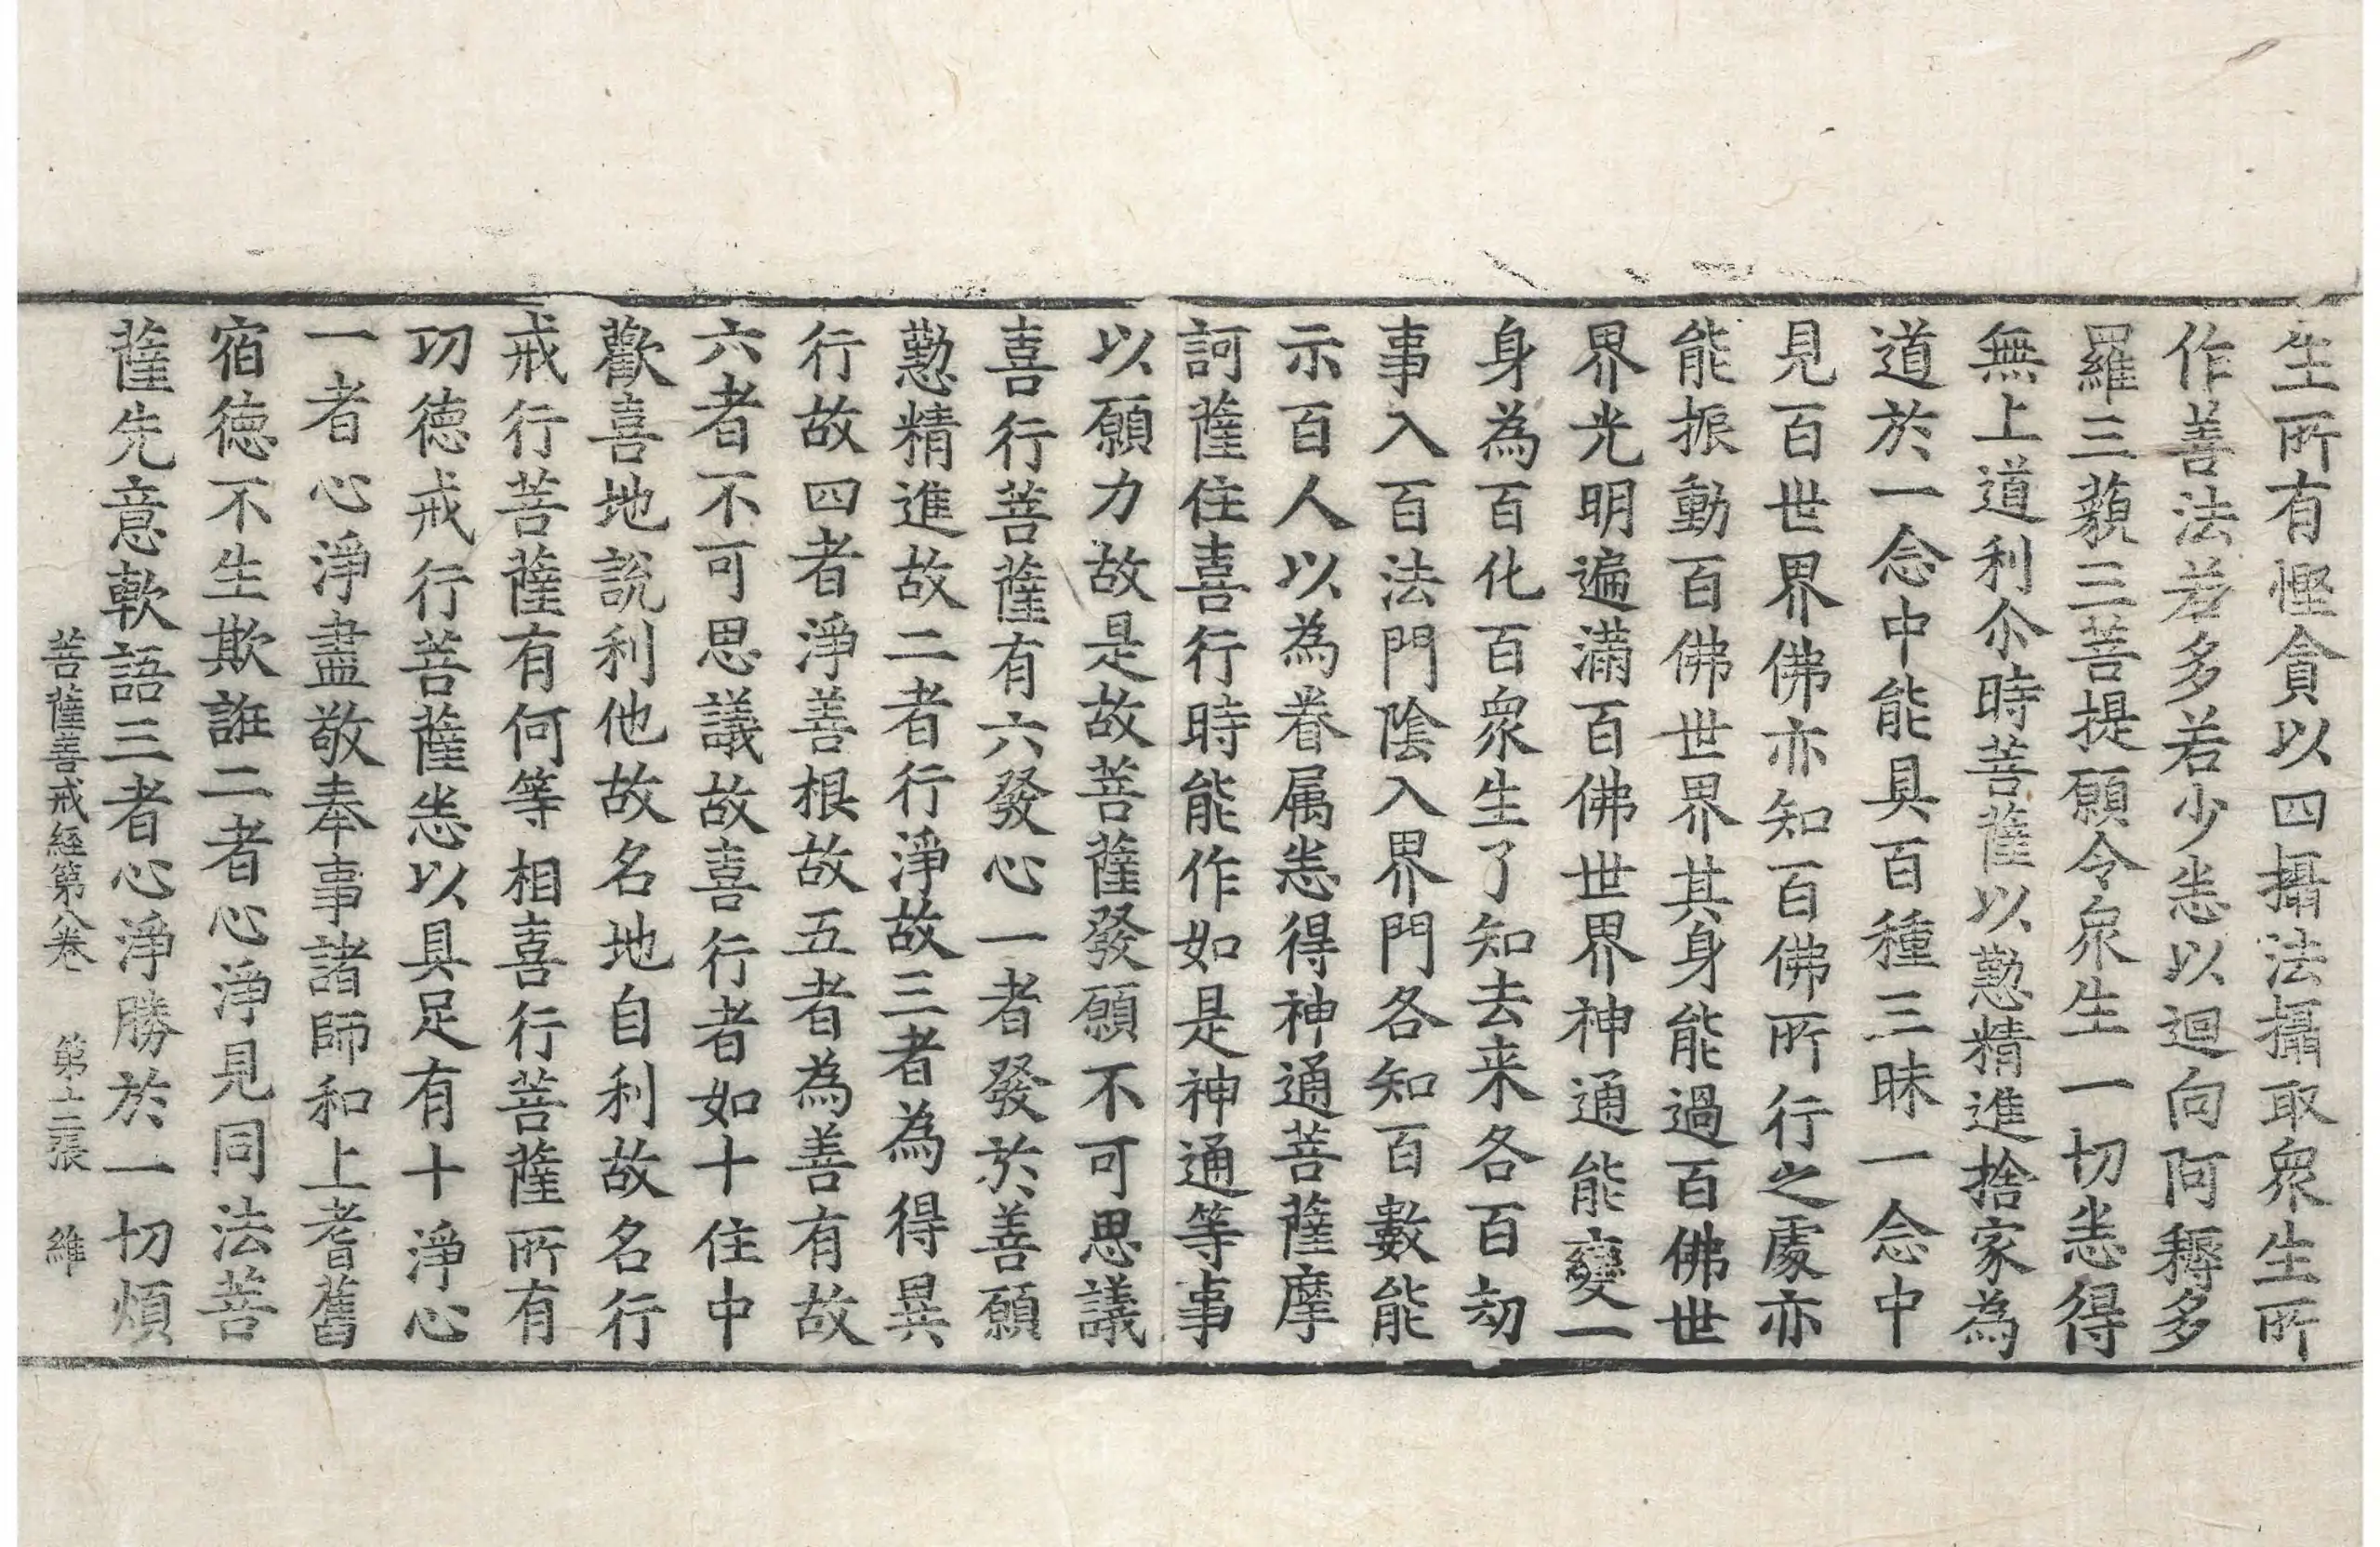 生所有慳貪以四攝法攝取眾生所
作善法若多若少悉以迴向阿耨多
羅三藐三菩提願令眾生一切悉得
無上道利尒時菩薩以懃精進捨家為
道於一念中能具百種三昧一念中
見百世界佛亦知百佛所行之處亦
能振動百佛世世界其身能過百佛世
界光明遍滿百佛世界神通能變一
身為百化百眾生了知去来各百劫
事入百法門陰入界門各知百數能
示百人以為眷属悉得神通菩薩摩
訶薩住喜行時能作如是神通等事
以願力故是故菩薩發願不可思議
喜行菩薩有六發心一者發於善願
懃精進故二者行淨故三者為得異
行故四者淨善根故五者為善有故
六者不可思議故喜行者如十住中
歡喜地說利他故名地自利故名行
戒行菩薩有何等相喜行菩薩所有
功德戒行菩薩悉以具足有十淨心
一者心淨盡敬奉事諸師和上耆舊
宿德不生欺誑二者心淨見同法菩
薩先意軟語三者心淨勝於一切煩
菩薩善戒經第八卷 第十二張 維